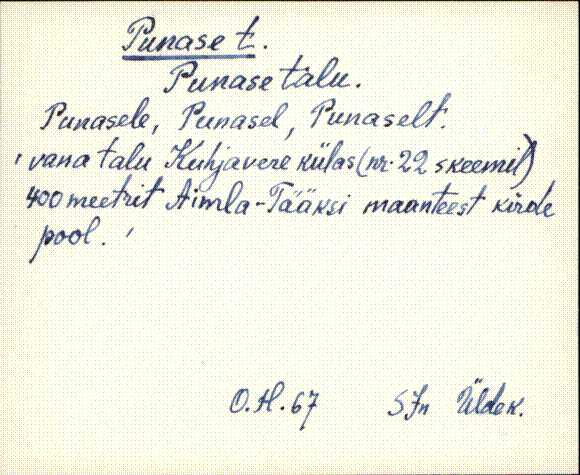 Punase t.
Punase talu.
Punasele, Punasel, Punaselt.
'vana talu Kuhjavere külas (nr. 22 skeemil)
400 meetrit Aimla-Tääksi maanteest kirde
pool.'
O.H. 67 SJn Üldek.